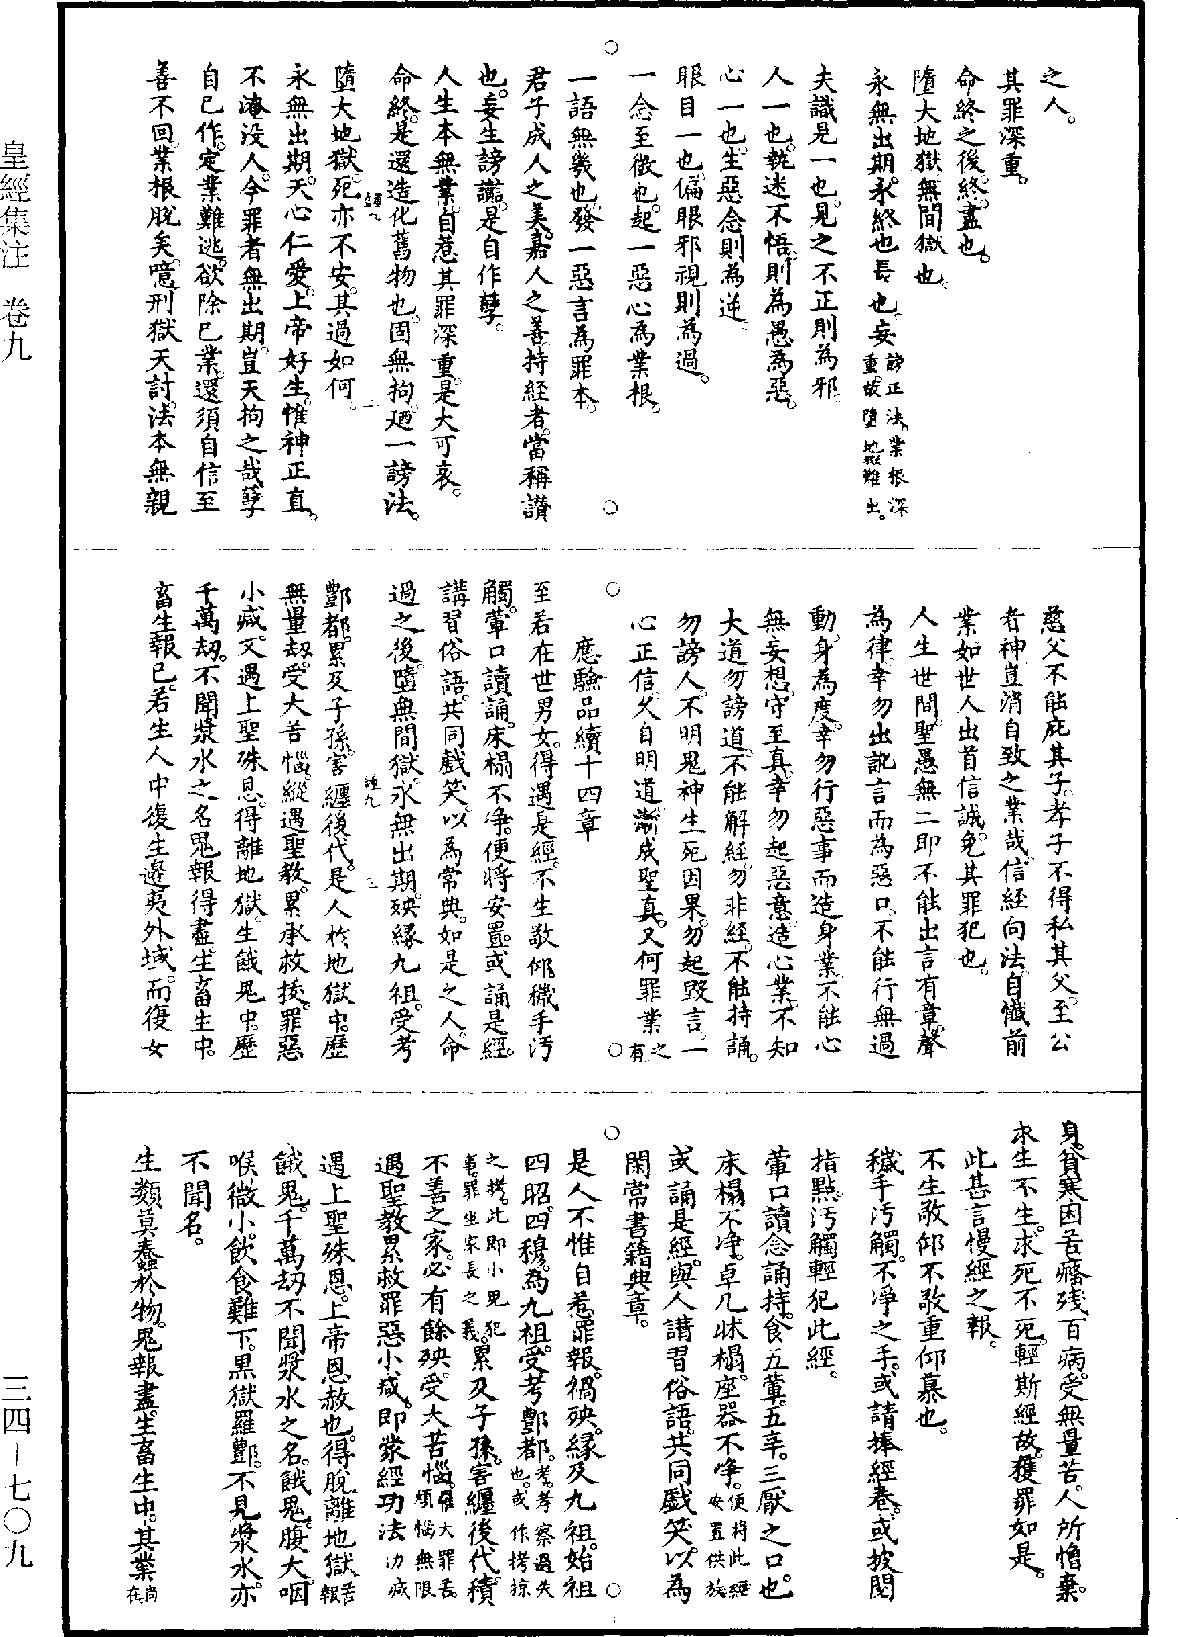 皇經集注　卷九
三四－七〇九
之人。
其罪深重。
命終之後。終盡也。
墮大地獄無間獄也。
永無出期。永終也長也。妄謗正法。業根深重。故墮地獄難出。
夫識是一也。見之不正則為邪。
人一也。執迷不悟。則為愚為惡。
心一也。生惡念則為逆。
眼目一也。偏眼邪視則為過。
一念至微也。起一惡心為業根。
一語無幾也。發一惡言為罪本。
君子成人之美。嘉人之善。持經者。當稱讚
也。妄生謗讟。是自作孽。
人生本無業。自惹其罪深重。是大可哀。
命終。是還造化舊物也。固無拘廼一謗法。
墮大地獄。死亦不安。其過如何。
永無出期。天心仁愛。上帝好生。惟神正直。
不淹没人。今罪者無出期。豈天拘之哉。孽
自己作。定業難逃。欲除已業。還須自信至
善不回。業根脫矣。噫。刑獄天討。法本無親
慈父不能庇其子。孝子不得私其父。至公
者神。豈消自致之業哉。信經向法。自懺前
業如世人出首信誠。免其罪犯也。
人生世間。聖愚無二。即不能出言有章。聲
為律。幸勿出訛言而為惡口。不能行無過
動。身為度。幸勿行惡事而造身業。不能心
無妄想。守至真。幸勿起惡意。造心業。不知
大道勿謗道。不能解經。勿非經。不能持誦。
勿謗人。不明鬼神生死因果。勿起毀言。一
心正信。久自明道。漸成聖真。又何罪業之有
應驗品續十四章
至若在世男女。得遇是經。不生敬仰。穢手汚
觸。葷口讀誦。床榻不淨。便將安置。或誦是經。
講習俗語。共同戲笑。以為常典。如是之人。命
過之後。墮無間獄。永無出期。殃緣九祖。受考
酆都。累及子孫。害纏後代。是人於地獄中。歷
無量劫。受大苦惱。縱遇聖教。累承救拔。罪惡
小減。又遇上聖殊恩。得離地獄。生餓鬼中。歷
千萬劫。不聞漿水之名。鬼報得盡。生畜生中。
畜生報已。若生人中。復生邊夷外域。而復女
身。貧寒困苦。癃殘百病。受無量苦。人所憎棄。
求生不生。求死不死。輕斯經故。獲罪如是。
此甚言慢經之報。
不生敬仰不敬重仰慕也。
穢手汚觸。不淨之手。或請捧經卷。或披閱
指點。汚觸輕犯此經。
葷口讀念誦持。食五葷。五辛。三厭之口也。
床榻不淨。卓几牀榻。座器不淨。便將此經安置供旅
或誦是經。與人講習俗語。共同戲笑。以為
閑常書籍典章。
是人不惟自惹罪報。禍殃。緣及九祖。始祖
四昭。四穆。為九祖。受考酆都。考。考察過失也。或作拷掠
之拷。此即小兒犯事。罪坐家長之義。累及子孫。害纏後代。積
不善之家。必有餘殃。受大苦惱。罹大罪苦煩惱無限
遇聖教累救罪惡小減。即蒙經功法功減
遇上聖殊恩。上帝恩赦也。得脫離地獄苦報
餓鬼。千萬劫不聞漿水之名。餓鬼。腹大咽
喉微小。飲食難下。黑獄羅酆。不見漿水。亦
不聞名。
生類莫蠢於物。鬼報盡。生畜生中。其業尚在